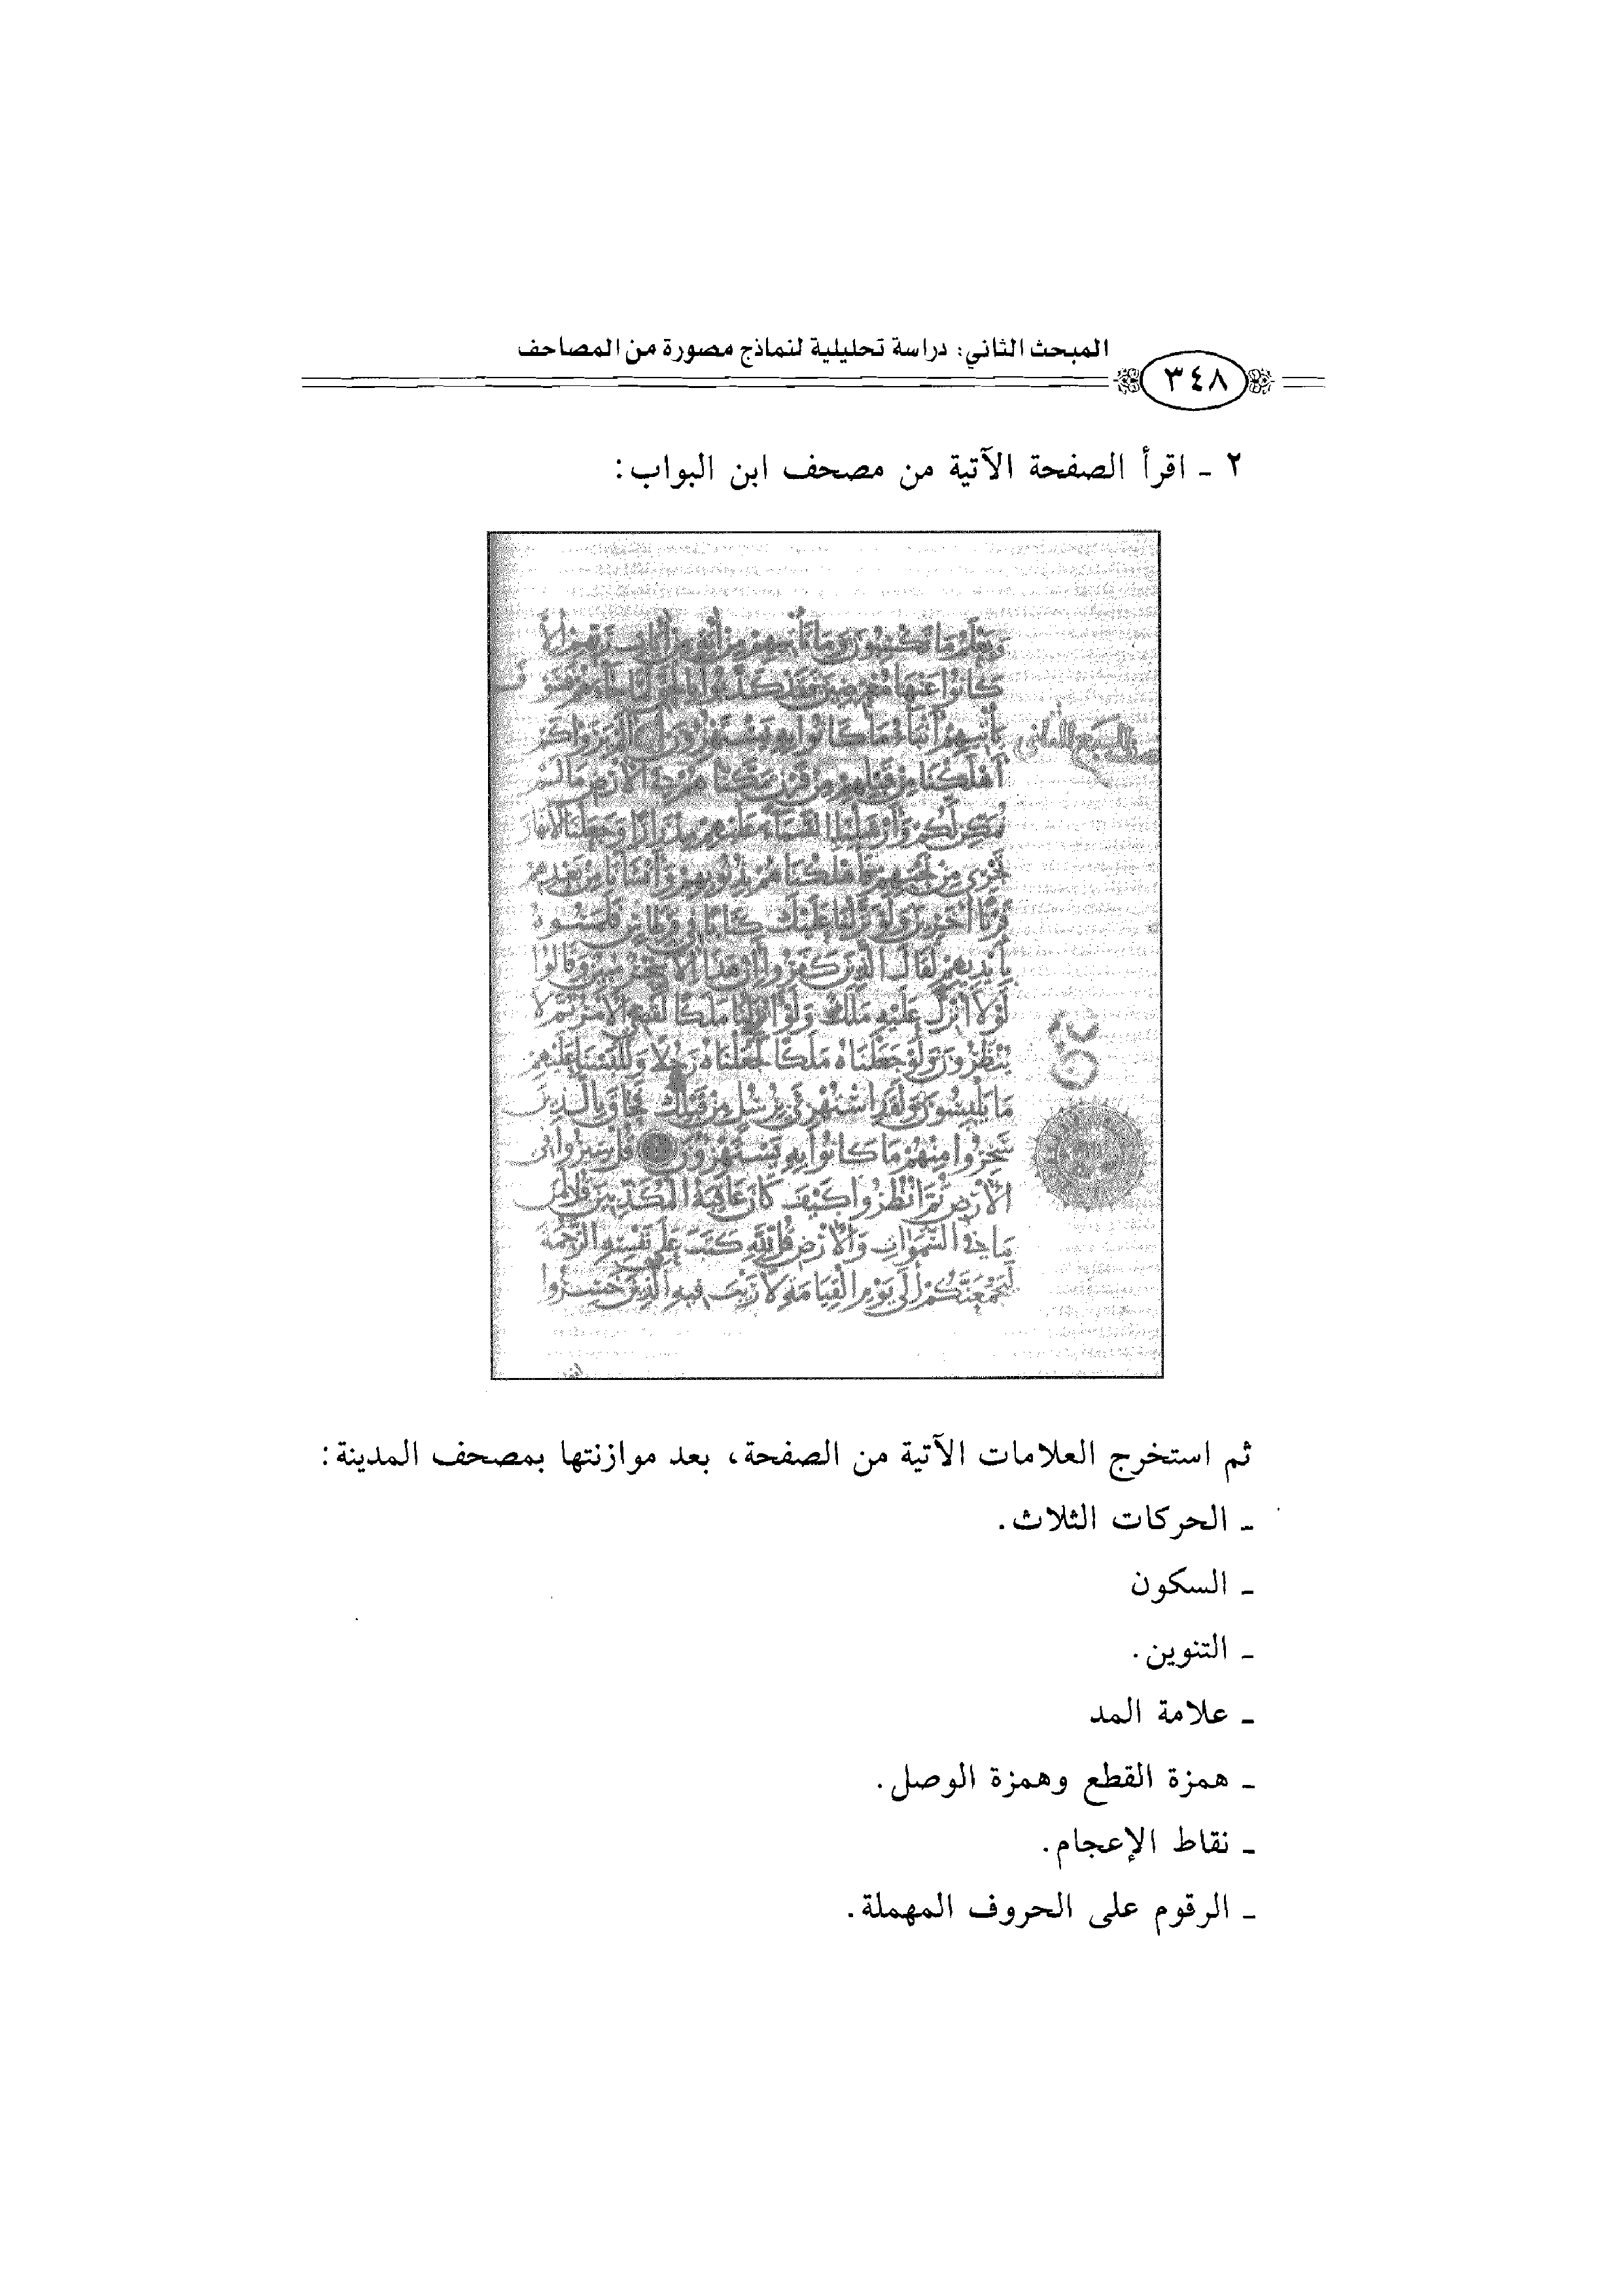 المبحث الثاني: دراسة تحليلية لنماذج مصورة من المصاحف
٣٤٨
٢ ـ اقرأ الصفحة الآتية من مصحف ابن البواب:
ويعلم ما تكسبون وما تأتيهم من آية من آيات ربهم إلا
كانوا عنها معرضين فقد كذبوا بالحق لما جاءهم فسوف
يأتيهم أنباء ما كانوا به يستهزؤن ألم يروا كم
أهلكنا من قبلهم من قرن مكناهم في الأرض ما لم
نمكن لكم وأرسلنا السماء عليهم مدرارا وجعلنا الأنهار
تجري من تحتهم فأهلكناهم بذنوبهم وأنشأنا من بعدهم
قرنا آخرين ولو نزلنا عليك كتابا في قرطاس فلمسوه
بأيديهم لقال الذين كفروا إن هذا إلا سحر مبين وقالوا
لولا أنزل عليه ملك ولو أنزلنا ملكا لقضي الأمر ثم لا
ينظرون ولو جعلناه ملكا لجعلناه رجلا وللبسنا عليهم
ما يلبسون ولقد استهزئ برسل من قبلك فحاق بالذين
سخروا منهم ما كانوا به يستهزؤن قل سيروا في
الأرض ثم انظروا كيف كان عاقبة المكذبين قل لمن
ما في السموات والأرض قل لله كتب على نفسه الرحمة
ليجمعنكم إلى يوم القيامة لا ريب فيه الذين خسروا
ثم استخرج العلامات الآتية من الصفحة، بعد موازنتها بمصحف المدينة:
ـ الحركات الثلاث.
ـ السكون
ـ التنوين.
ـ علامة المد
ـ همزة القطع وهمزة الوصل.
ـ نقاط الإعجام.
ـ الرقوم على الحروف المهملة.